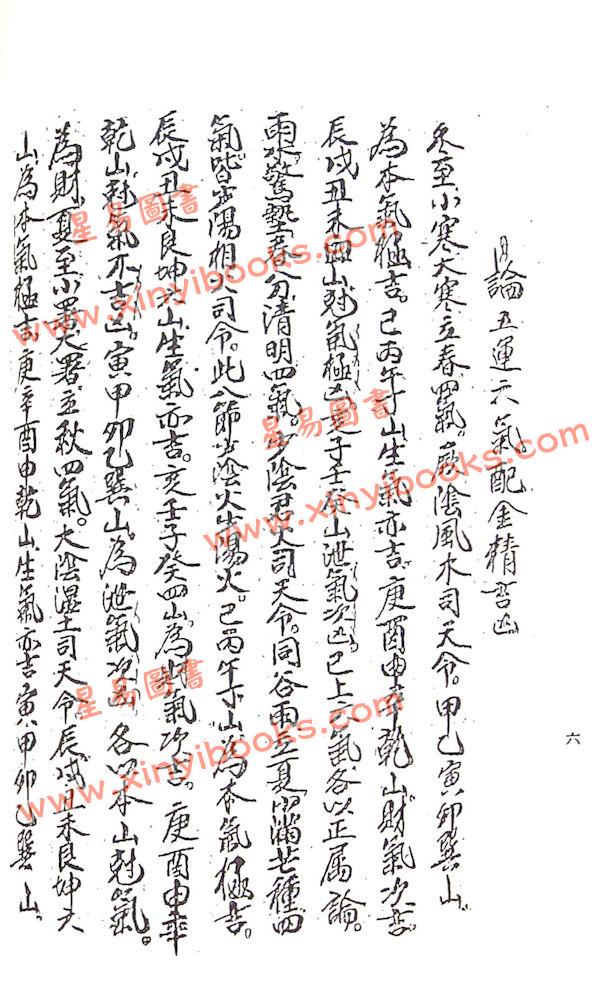 論五運六氣配金精吉凶
六
冬至小寒大寒立春四氣。厥陰風木司天令。甲乙寅卯巽山
為本氣極吉。巳丙午丁山生氣亦吉。庚酉申辛乾山財氣次吉
辰戌丑未四山尅氣極凶亥子壬癸山泄氣次凶。已上六氣各以正属論。
雨水驚蟄春分清明四氣。少陰君火司天令。同谷雨立夏小滿芒種四
氣皆少陽相火司令。此八節少陰火少陽火。巳丙午丁山為本氣極吉。
辰戌丑未艮坤六山生氣亦吉。亥壬子癸四山為財氣次吉。庚酉申辛
乾山尅氣不吉凶。寅甲卯乙巽山為泄氣次凶各以本山尅氣。
為財。夏至小暑大暑立秋四氣。大陰濕土司天令。辰戌丑未艮坤六
山為本氣極吉。庚辛酉申乾山生氣亦吉寅甲卯乙巽山。
星易圖書
www.xinyibooks.com
星易圖書
www.xinyibooks.com
星易圖書
www.xinyibooks.com